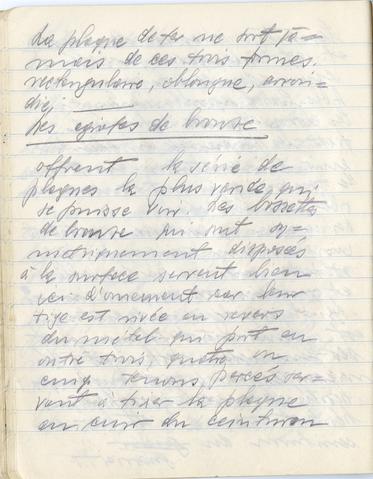 La plaque de fer ne sort ja=
mais de ces trois formes.
rectangulaire, oblongue, arron-
die,
Les agrafes de bronze
offrent la série de
plaques la plus variée qui
se puisse voir. Les bossettes
de bronze qui sont sy-
metriquement disposés
à la surface servent bien
ici d'ornement car leur
tige est rivée au revers
du métal qui porte en
outre trois, quatre ou
cinq tenons percés ser-
vant à fixer la plaque
au cuir du ceinturon